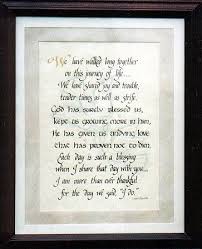 We have walked long together
on this journey of life...
We have shared joy and trouble,
tender times as well as strife.
God has surely blessed us,
kept us growing more in him,
He has given us undying love
that has proven not to dim.
Each day is such a blessing
when I share that day with you...
I am more than ever thankful
for the day we said, "I do."